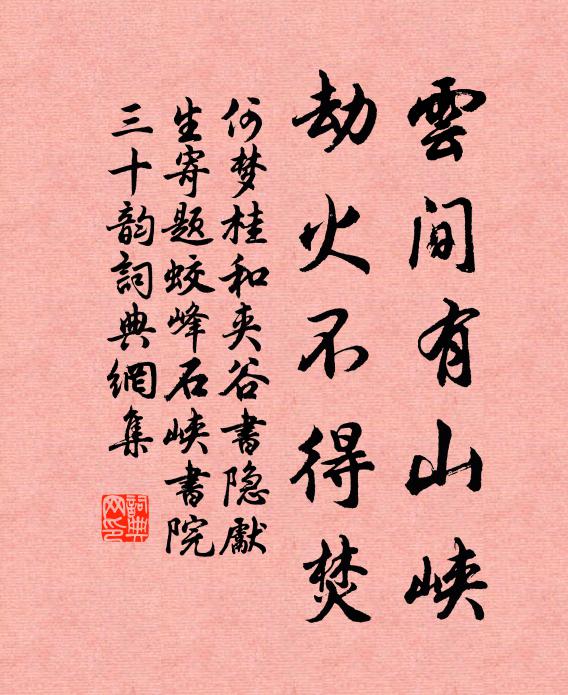 雲间有山峡
劫火不得焚
何梦桂和夹谷书隐獻
生寄题蛟峰石峡書院
三十韵詞典網集
詞典
网印